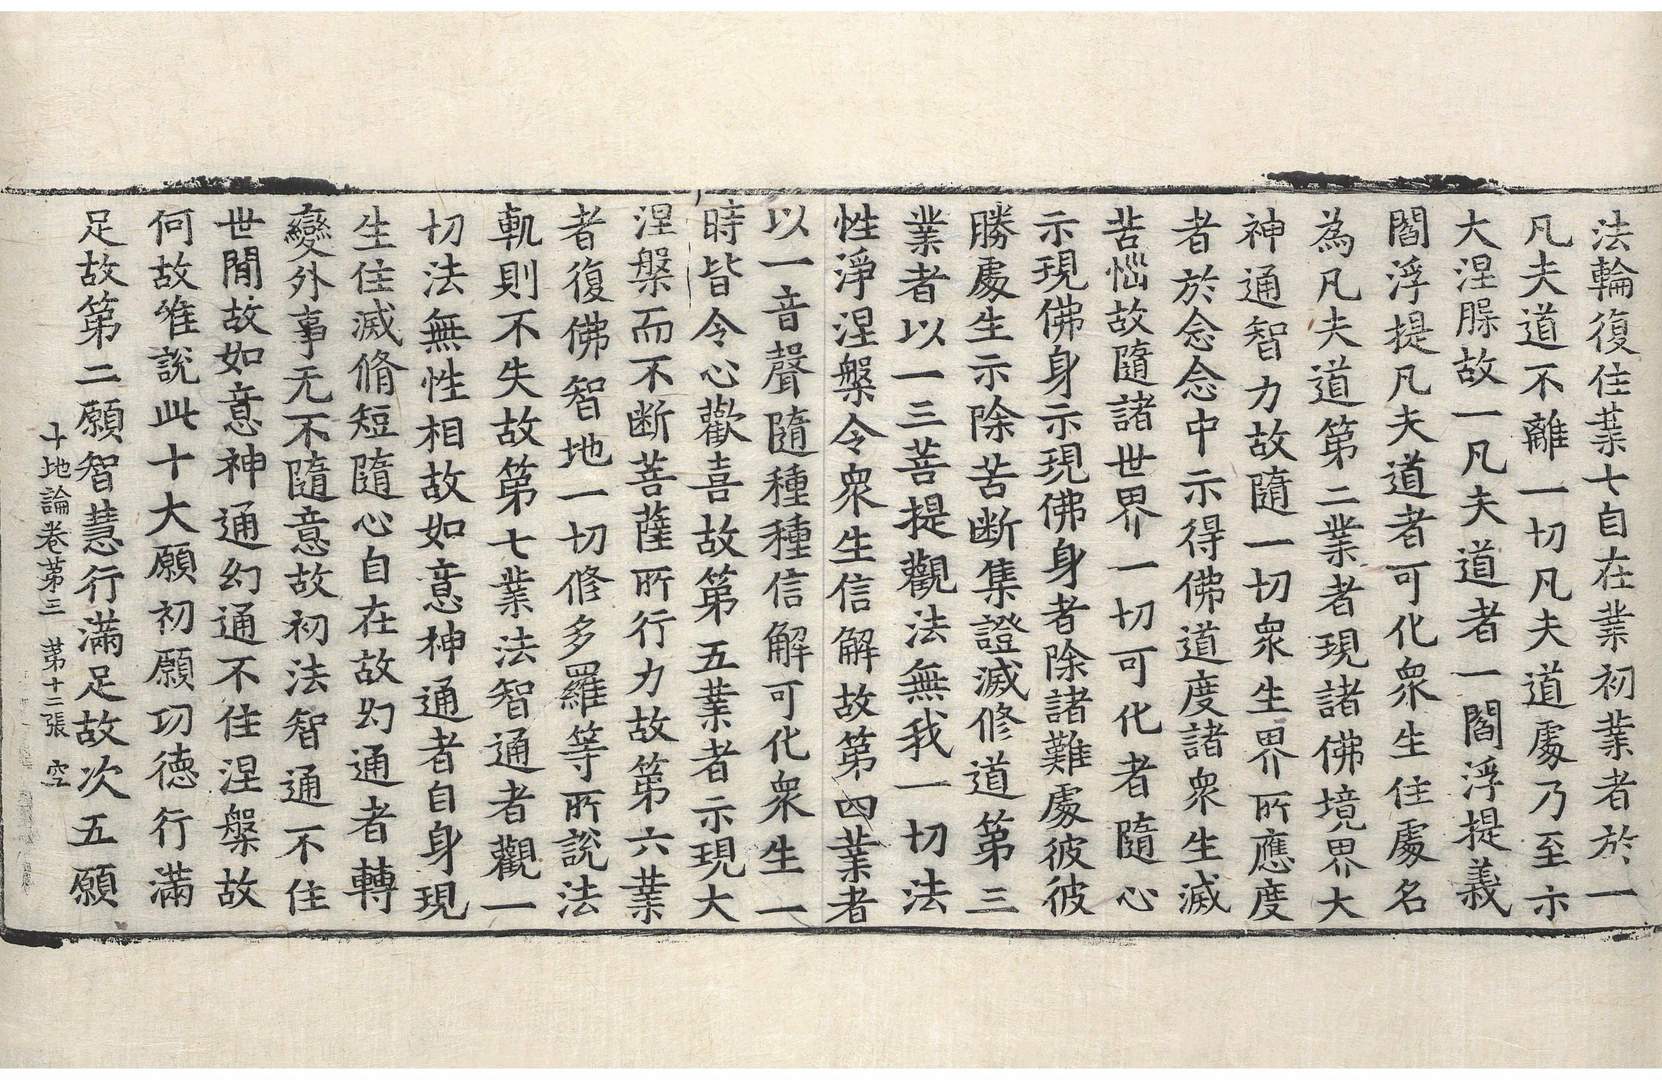 法輪復住業七自在業初業者於一
凡夫道不離一切凡夫道處乃至示
大涅槃故一凡夫道者一閻浮提義
閻浮提凡夫道者可化衆生住處名
為凡夫道第二業者現諸佛境界大
神通智力故隨一切衆生界所應度
者於念念中示得佛道度諸衆生滅
苦惱故隨諸世界一切可化者隨心
示現佛身示現佛身者除諸難處彼彼
勝處生示除苦断集證滅修道第三
業者以一三菩提觀法無我一切法
性淨涅槃令衆生信解故第四業者
以一音聲隨種種信解可化衆生一
時皆令心歡喜故第五業者示現大
涅槃而不断菩薩所行力故第六業
者復佛智地一切修多羅等所說法
軌則不失故第七業法智通者觀一
切法無性相故如意神通者自身現
生住滅脩短隨心自在故幻通者轉
變外事无不隨意故初法智通不住
世間故如意神通幻通不住涅槃故
何故唯說此十大願初願功德行滿
足故第二願智慧行滿足故次五願
十地論卷第三 第十二張 空